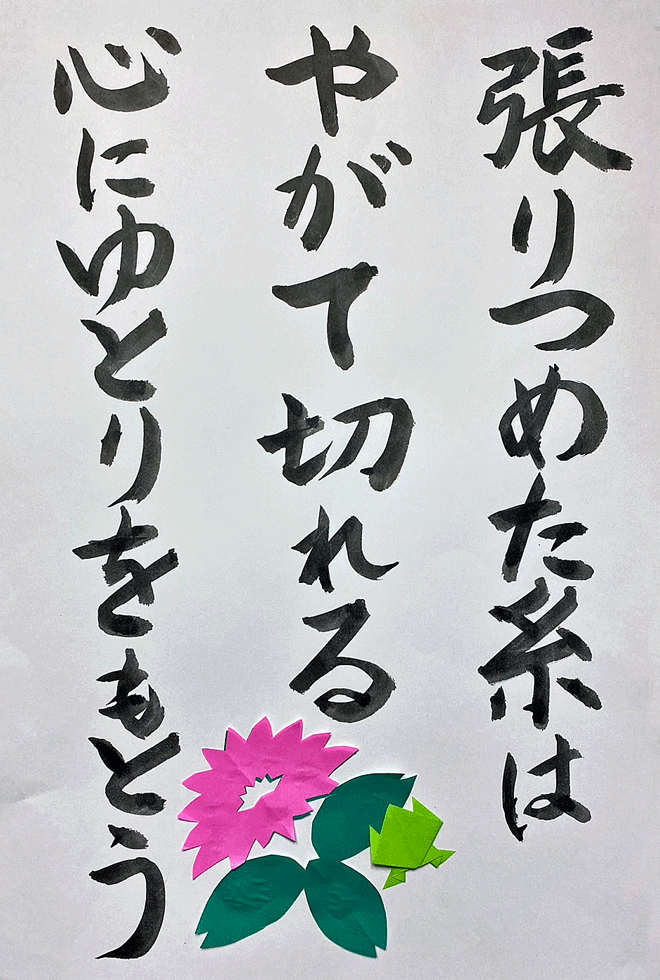 張りつめた糸は
やがて切れる
心にゆとりをもとう